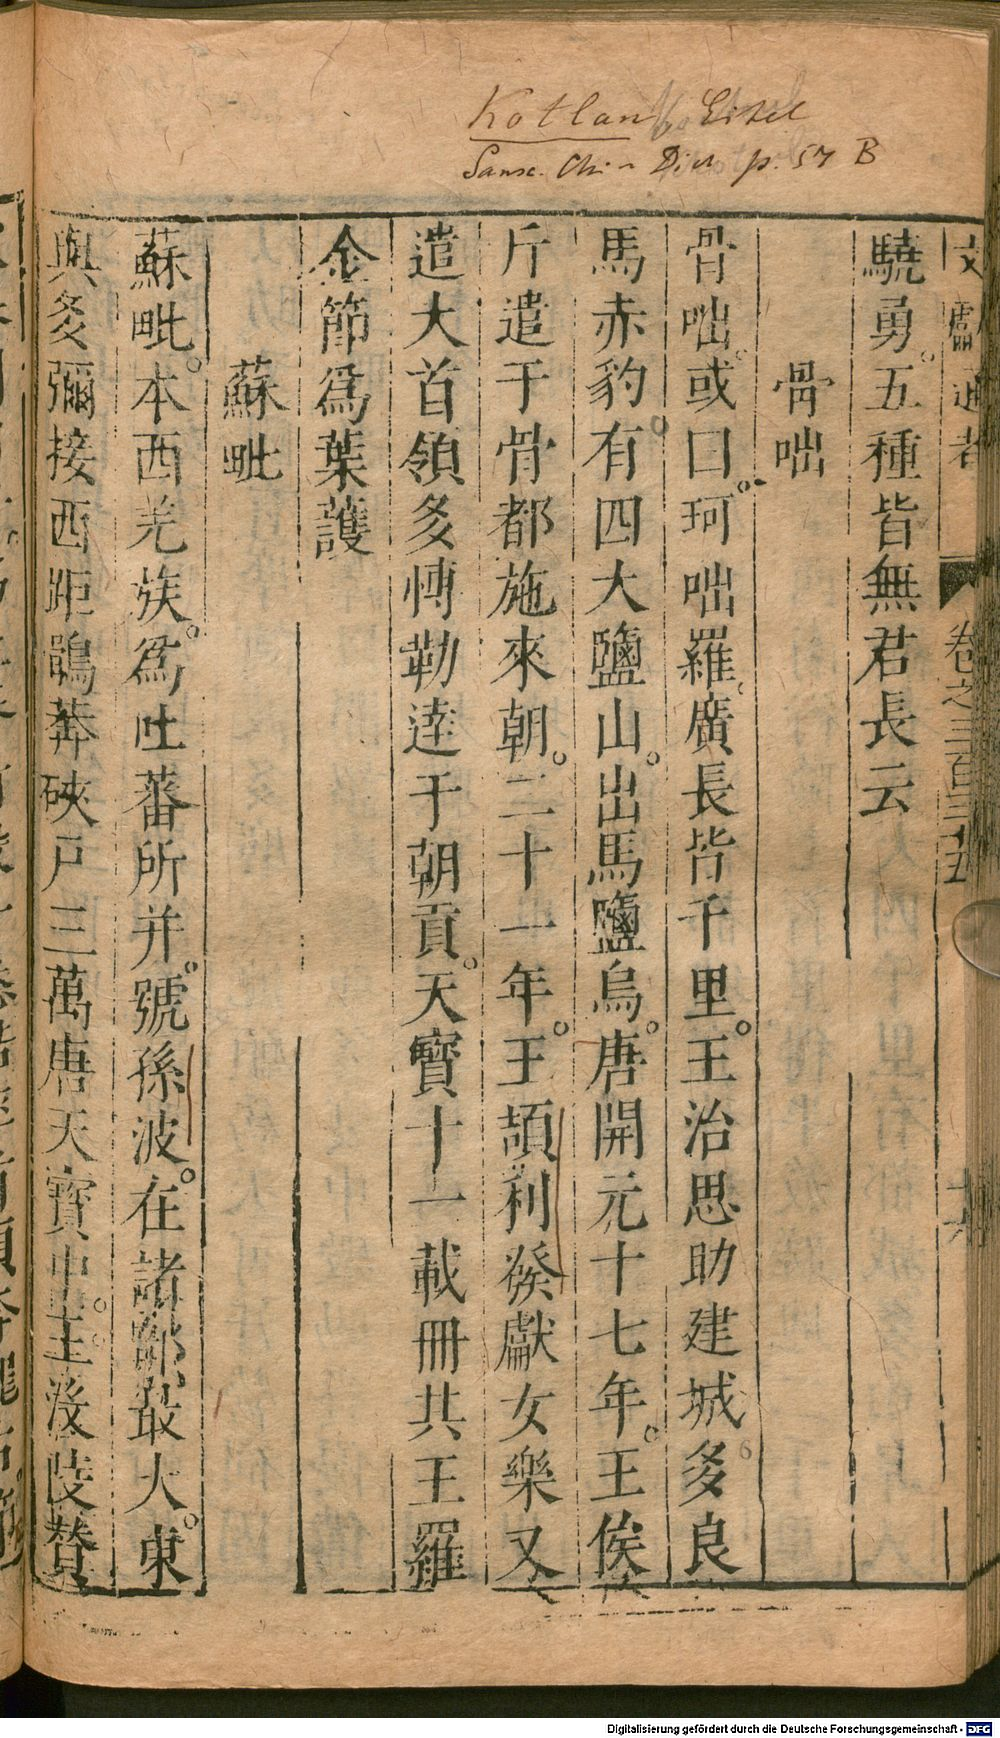 Kotlan Eitel
Sansc. Chi - Dict p. 57 B
文獻通考
卷之三百三十五
十六
驍勇五種皆無君長云
骨咄
骨咄或曰珂咄羅廣長皆千里王治思助建城多良
馬赤豹有四大鹽山山出馬鹽烏唐開元十七年王俟
斤遣子骨都施來朝二十一年王頡利發獻女樂又
遣大首領多博勒達于朝貢天寶十一載冊其王羅
金節為葉護
蘇毗
蘇毗本西羌族為吐蕃所并號孫波在諸部最大東
與多彌接西距鶻莽硤戶三萬唐天寶中王沒陵贊
Digitalisierung gefördert durch die Deutsche Forschungsgemeinschaft - DFG